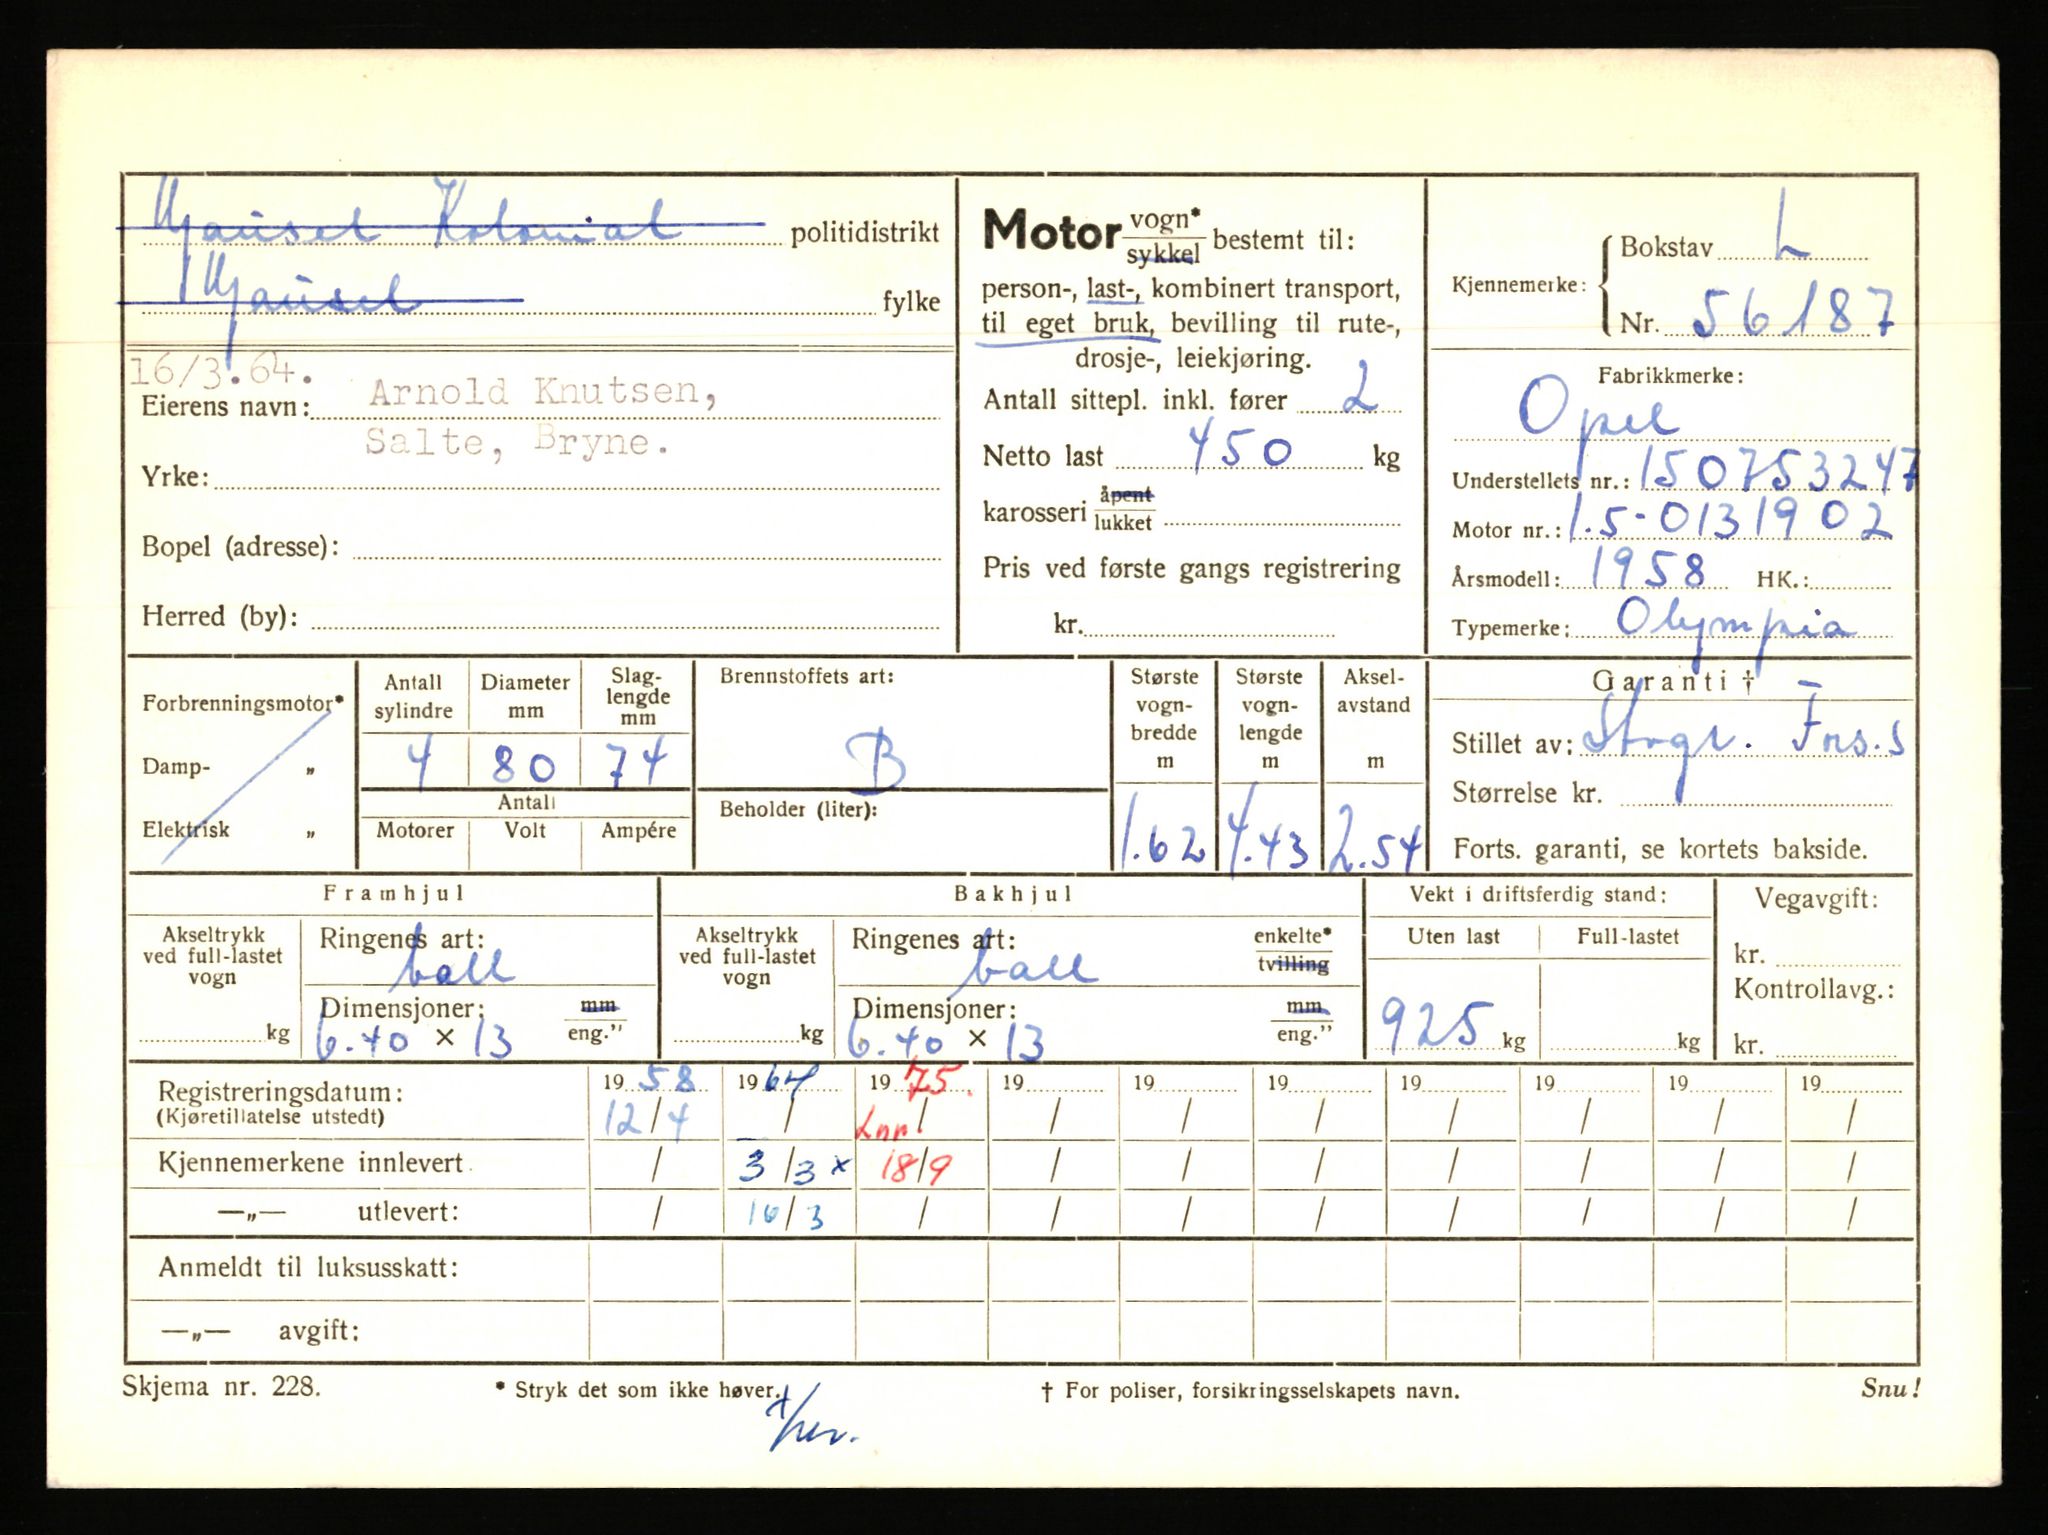 Hjauset Kolonial politidistrikt
Hjauset fylke
16/3.64.
Eierens navn: Arnold Knutsen,
Salte, Bryne.
Yrke:
Bopel (adresse):
Herred (by):
Motor vogn* / sykkel bestemt til:
person-, last-, kombinert transport,
til eget bruk, bevilling til rute-,
drosje-, leiekjøring.
Antall sittepl. inkl. fører 2
Netto last 450 kg
karosseri åpent / lukket
Pris ved første gangs registrering
kr.
Kjennemerke: Bokstav L
Nr. 56187
Fabrikkmerke:
Opel
Understellets nr.: 150753247
Motor nr.: 1.5-0131902
Årsmodell: 1958 HK.:
Typemerke: Olympia
Forbrenningsmotor*
Damp- „
Elektrisk „
Antall sylindre Diameter mm Slag-lengde mm
4 80 74
Antall
Motorer Volt Ampére
Brennstoffets art:
B
Beholder (liter):
Største vogn-bredde m
1.62
Største vogn-lengde m
4.43
Aksel-avstand m
2.54
Garanti †
Stillet av: Fors.s
Størrelse kr.
Forts. garanti, se kortets bakside.
Framhjul
Akseltrykk ved full-lastet vogn
kg
Ringenes art:
ball
Dimensjoner: mm / eng.”
6.40 × 13
Bakhjul
Akseltrykk ved full-lastet vogn
kg
Ringenes art: enkelte* / tvilling
ball
Dimensjoner: mm / eng.”
6.40 × 13
Vekt i driftsferdig stand:
Uten last Full-lastet
925 kg kg
Vegavgift:
kr.
Kontrollavg.:
kr.
Registreringsdatum: 19 58 19 64 19 75. 19 19 19 19 19 19 19
(Kjøretillatelse utstedt) 12/4 / Lnr. / / / / / / / /
Kjennemerkene innlevert / 3/3 x 18/9 / / / / / / /
—„— utlevert: / 16/3 / / / / / / / /
Anmeldt til luksusskatt:
—„— avgift:
Skjema nr. 228. * Stryk det som ikke høver. † For poliser, forsikringsselskapets navn. Snu!